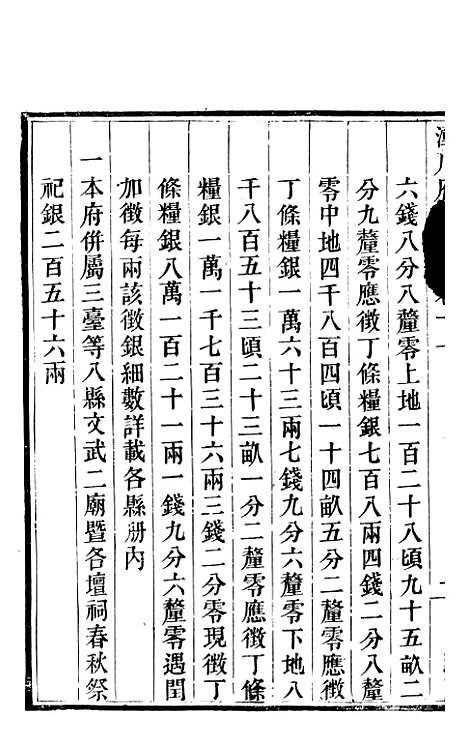 六錢八分八釐零上地一百二十八頃九十五畝二
分九釐零應徵丁條糧銀七百八兩四錢二分八釐
零中地四千八百四頃一十四畝五分二釐零應徵
丁條糧銀一萬六十三兩七錢九分六釐零下地八
千八百五十三頃二十三畝一分二釐零應徵丁條
糧銀一萬一千七百三十六兩三錢二分零現徵丁
條糧銀八萬一百二十一兩一錢九分六釐零遇閏
加徵每兩該徵銀細數詳載各縣册內
一本府併屬三臺等八縣文武二廟暨各壇祠春秋祭
祀銀二百五十六兩